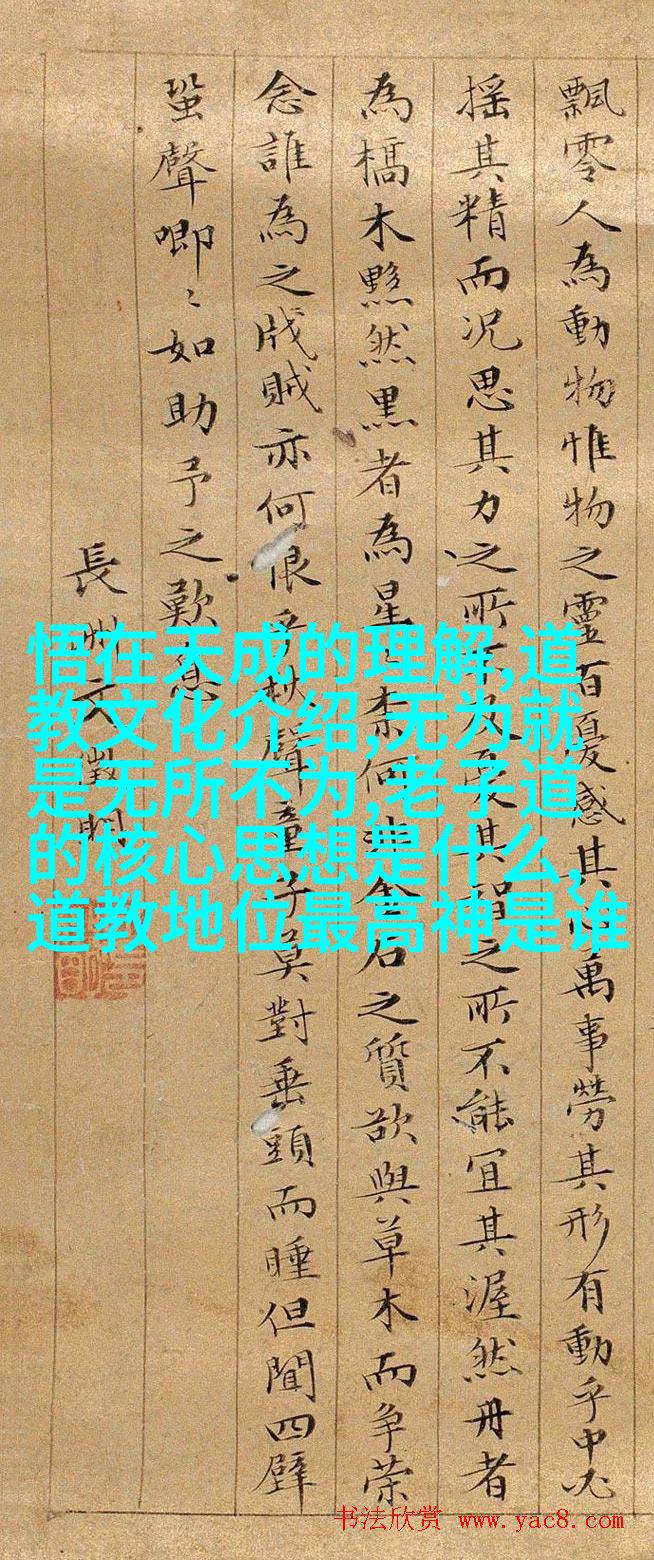 飄零人為動物惟物之靈百憂感其心萬事勞其形有動乎中必
搖其精而況思其力之所不及憂其智之所不能宜其渥然丹者
為槁木黟然黑者為星〻柰何非金石之質欲與草木而爭榮
念誰為之戕賊亦何恨乎秋聲童子莫對垂頭而睡但聞四壁
蛩聲唧〻如助予之歎息
長洲文徵明
悟在天成的理解,道
教文化介绍,无为就
是无所不为,老子道
的核心思想是什么,
道教地位最高神是谁
书法欣赏 www.yac8.com